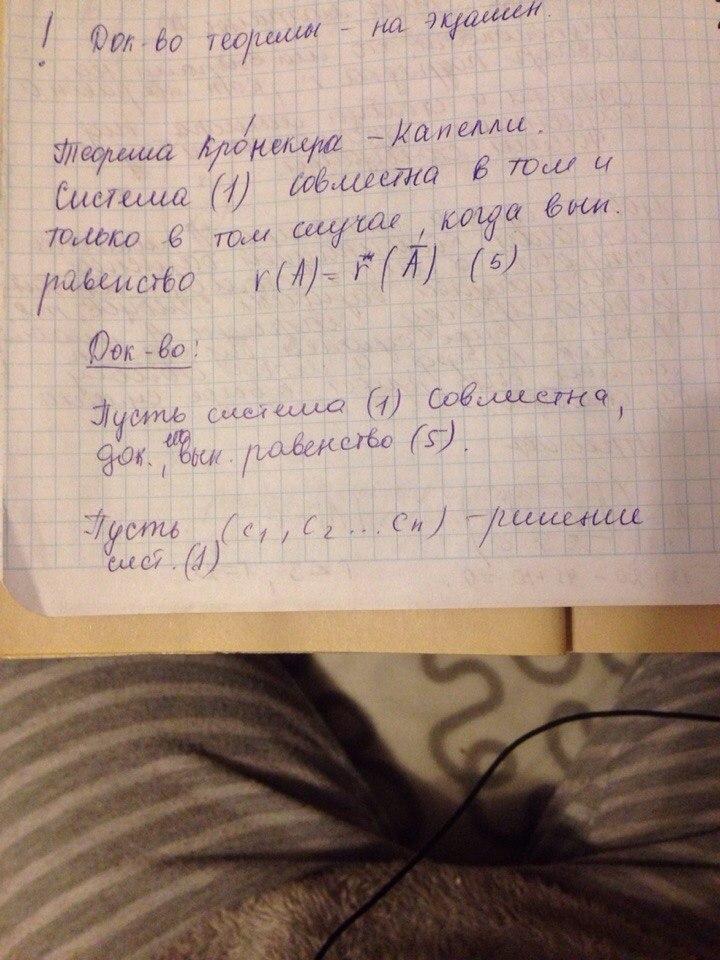 ! Док-во теоремы - на экзамен.
Теорема Кро́некера - Капелли.
Система (1) совместна в том и
только в том случае, когда вып.
равенство r(A) = r(Ā) (5)
Док-во:
Пусть система (1) совместна,
док., что вып. равенство (5).
Пусть (c₁, c₂ ... cₙ) - решение
сист. (1)